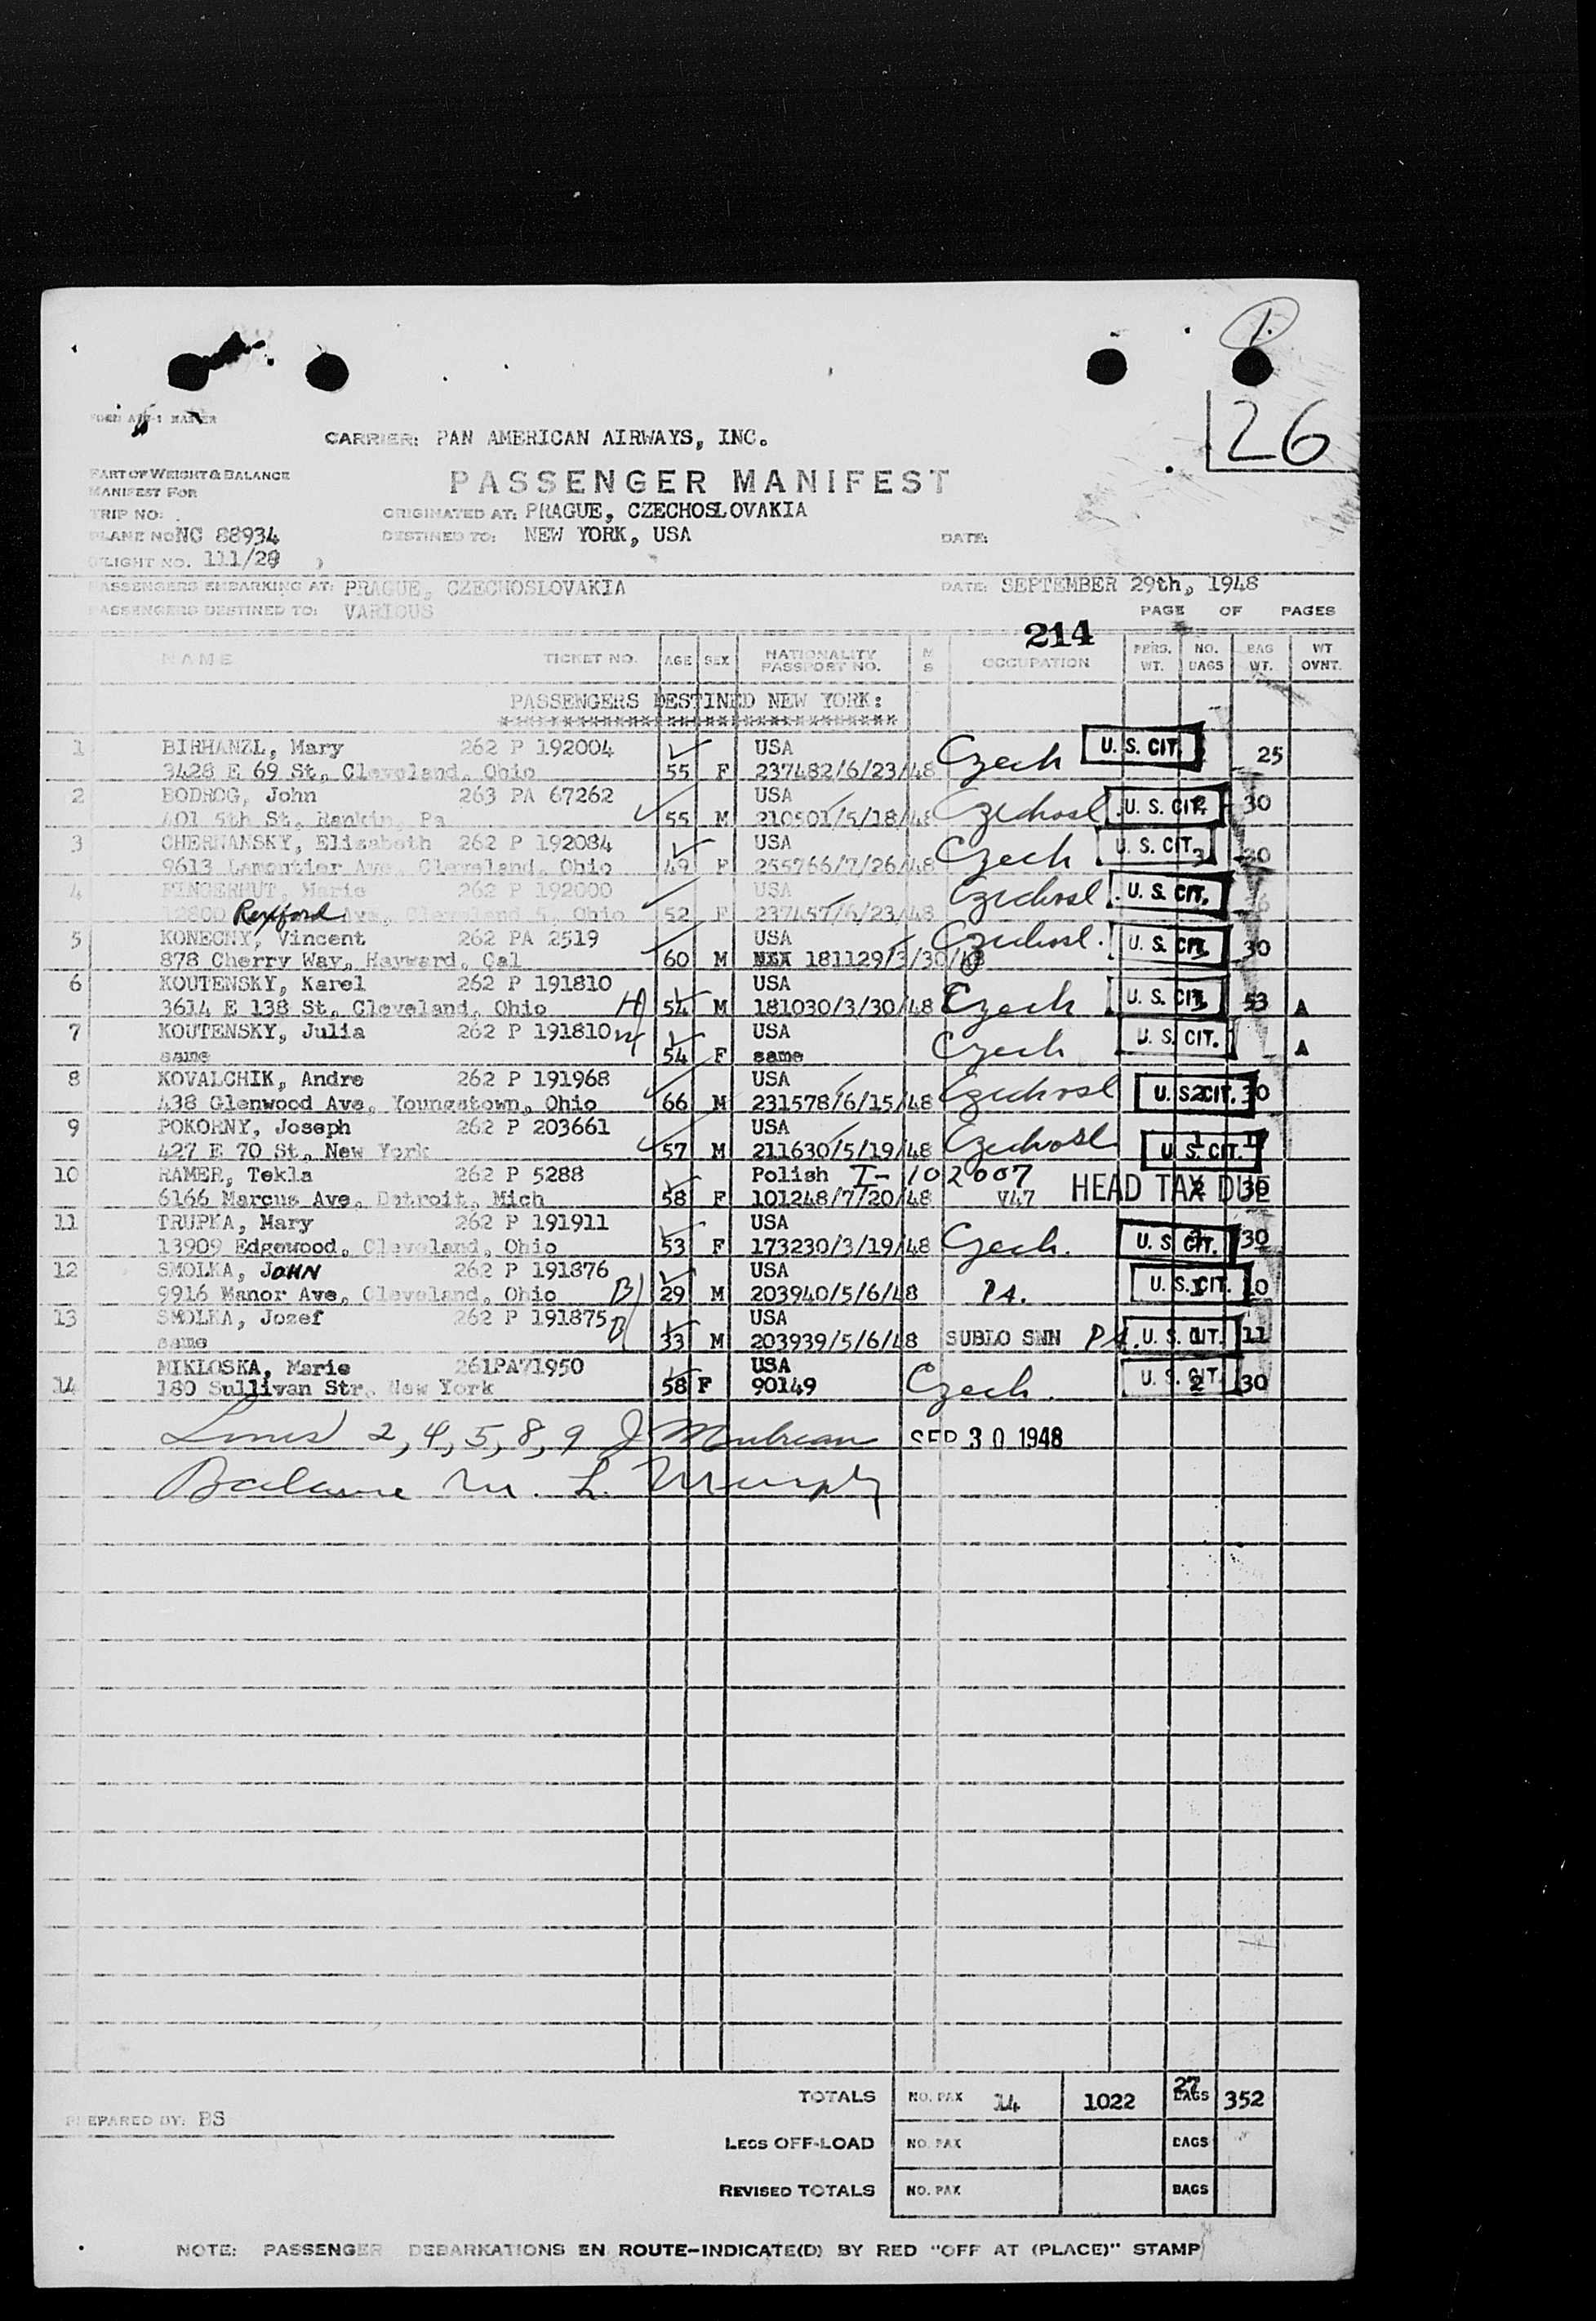 1.
26
FORM
CARRIER: PAN AMERICAN AIRWAYS, INC.
PART OF WEIGHT & BALANCE
MANIFEST FOR
PASSENGER MANIFEST
TRIP NO:
ORIGINATED AT: PRAGUE, CZECHOSLOVAKIA
PLANE NO NC 88934
DESTINED TO: NEW YORK, USA
DATE:
FLIGHT NO. 111/29
PASSENGERS EMBARKING AT: PRAGUE, CZECHOSLOVAKIA
DATE: SEPTEMBER 29th, 1948
PASSENGERS DESTINED TO: VARIOUS
PAGE OF PAGES
214
NAME TICKET NO. AGE SEX NATIONALITY PASSPORT NO. M S OCCUPATION PERS. WT. NO. BAGS BAG WT. WT OVNT.
PASSENGERS DESTINED NEW YORK:
1 BIRHANZL, Mary 262 P 192004 USA Czech U. S. CIT. 25
3428 E 69 St, Cleveland, Ohio 55 F 237482/6/23/48
2 BODROG, John 263 PA 67262 USA Czechosl U. S. CIT. 30
401 5th St, Rankin, Pa 55 M 210501/5/18/48
3 CHERNANSKY, Elisabeth 262 P 192084 USA Czech U. S. CIT. 3
9613 Lamontier Ave, Cleveland, Ohio 49 F 255766/7/26/48
4 FINGERHUT, Marie 262 P 192000 USA Czechosl U. S. CIT.
12800 Rexford Ave, Cleveland 5, Ohio 52 F 237457/6/23/48
5 KONECNY, Vincent 262 PA 2519 USA Czechosl. U. S. CIT. 30
878 Cherry Way, Hayward, Cal 60 M 181129/3/30/48
6 KOUTENSKY, Karel 262 P 191810 USA Czech U. S. CIT. 53 A
3614 E 138 St, Cleveland, Ohio H 54 M 181030/3/30/48
7 KOUTENSKY, Julia 262 P 191810 W USA Czech U. S. CIT. A
same 54 F same
8 KOVALCHIK, Andre 262 P 191968 USA Czechosl U. S. CIT. 2 30
438 Glenwood Ave, Youngstown, Ohio 66 M 231578/6/15/48
9 POKORNY, Joseph 262 P 203661 USA Czechosl U. S. CIT. 1
427 E 70 St, New York 57 M 211630/5/19/48
10 RAMER, Tekla 262 P 5288 Polish I-102007 HEAD TAX DUE 2 30
6166 Marcus Ave, Detroit, Mich 58 F 101248/7/20/48 V47
11 TRUPKA, Mary 262 P 191911 USA Czech. U. S. CIT. 30
13909 Edgewood, Cleveland, Ohio 53 F 173230/3/19/48
12 SMOLKA, JOHN 262 P 191876 USA PA. U. S. CIT. 1
9916 Manor Ave, Cleveland, Ohio B 29 M 203940/5/6/48
13 SMOLKA, Jozef 262 P 191875 B USA
same 33 M 203939/5/6/48 SUBLO SNN PA. U. S. CIT. 1 11
MIKLOSKA, Marie 261PA71950 USA Czech. U. S. CIT. 2 30
14 180 Sullivan Str, New York 58 F 90149
Lines 2, 4, 5, 8, 9 J SEP 30 1948
Balance M. L. Murphy
TOTALS NO. PAX 14 1022 27 BAGS 352
PREPARED BY: BS
LESS OFF-LOAD NO. PAX BAGS
REVISED TOTALS NO. PAX BAGS
NOTE: PASSENGER DEBARKATIONS EN ROUTE-INDICATE(D) BY RED "OFF AT (PLACE)" STAMP